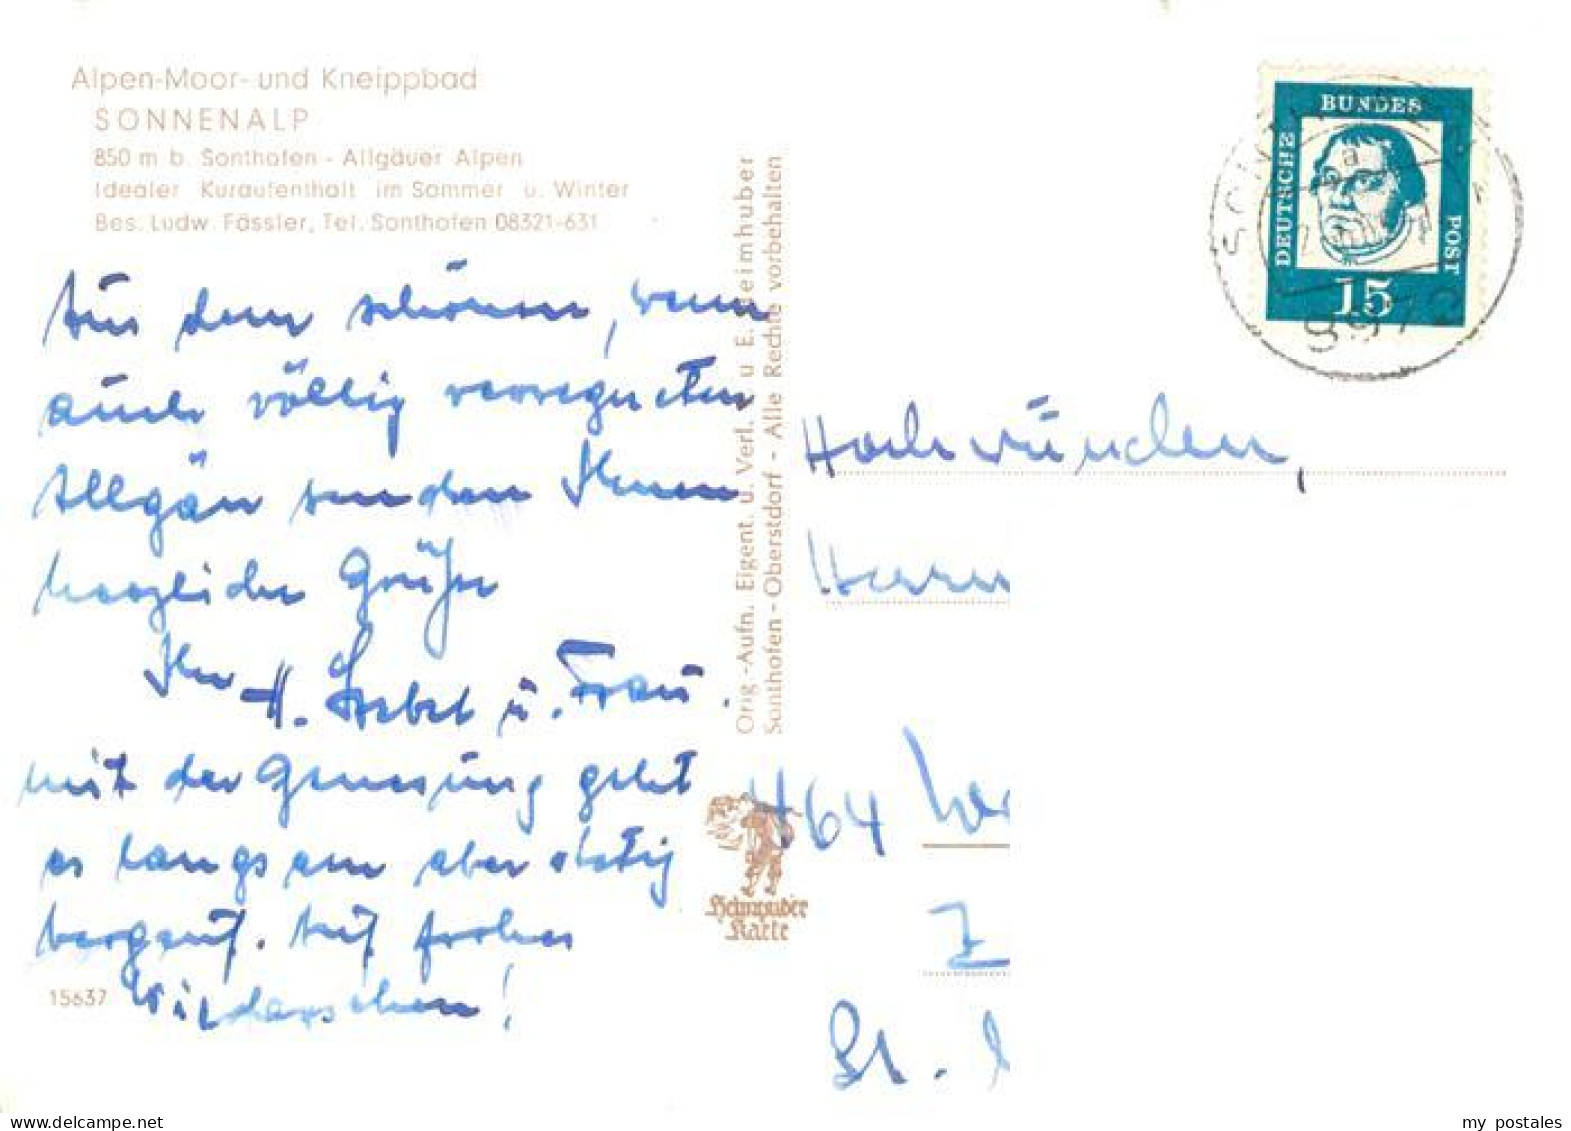 Alpen-Moor- und Kneippbad
SONNENALP
850 m b. Sonthofen - Allgäuer Alpen
Idealer Kuraufenthalt im Sommer u. Winter
Bes. Ludw. Fässler, Tel. Sonthofen 08321-631
Aus dem schönen, wenn
auch völlig verregneten
Allgäu senden Ihnen
herzliche Grüße
Ihr H. u. Frau.
mit der Genesung geht
es langsam aber stetig
bergauf. Auf frohes
Wiedersehen!
15637
Orig.-Aufn. Eigent. u. Verl. u. E. Heimhuber
Sonthofen - Oberstdorf - Alle Rechte vorbehalten
Heimhuber
Karte
DEUTSCHE
BUNDES
POST
15
897
Hochwürden,
Herrn
464
St.
my postales